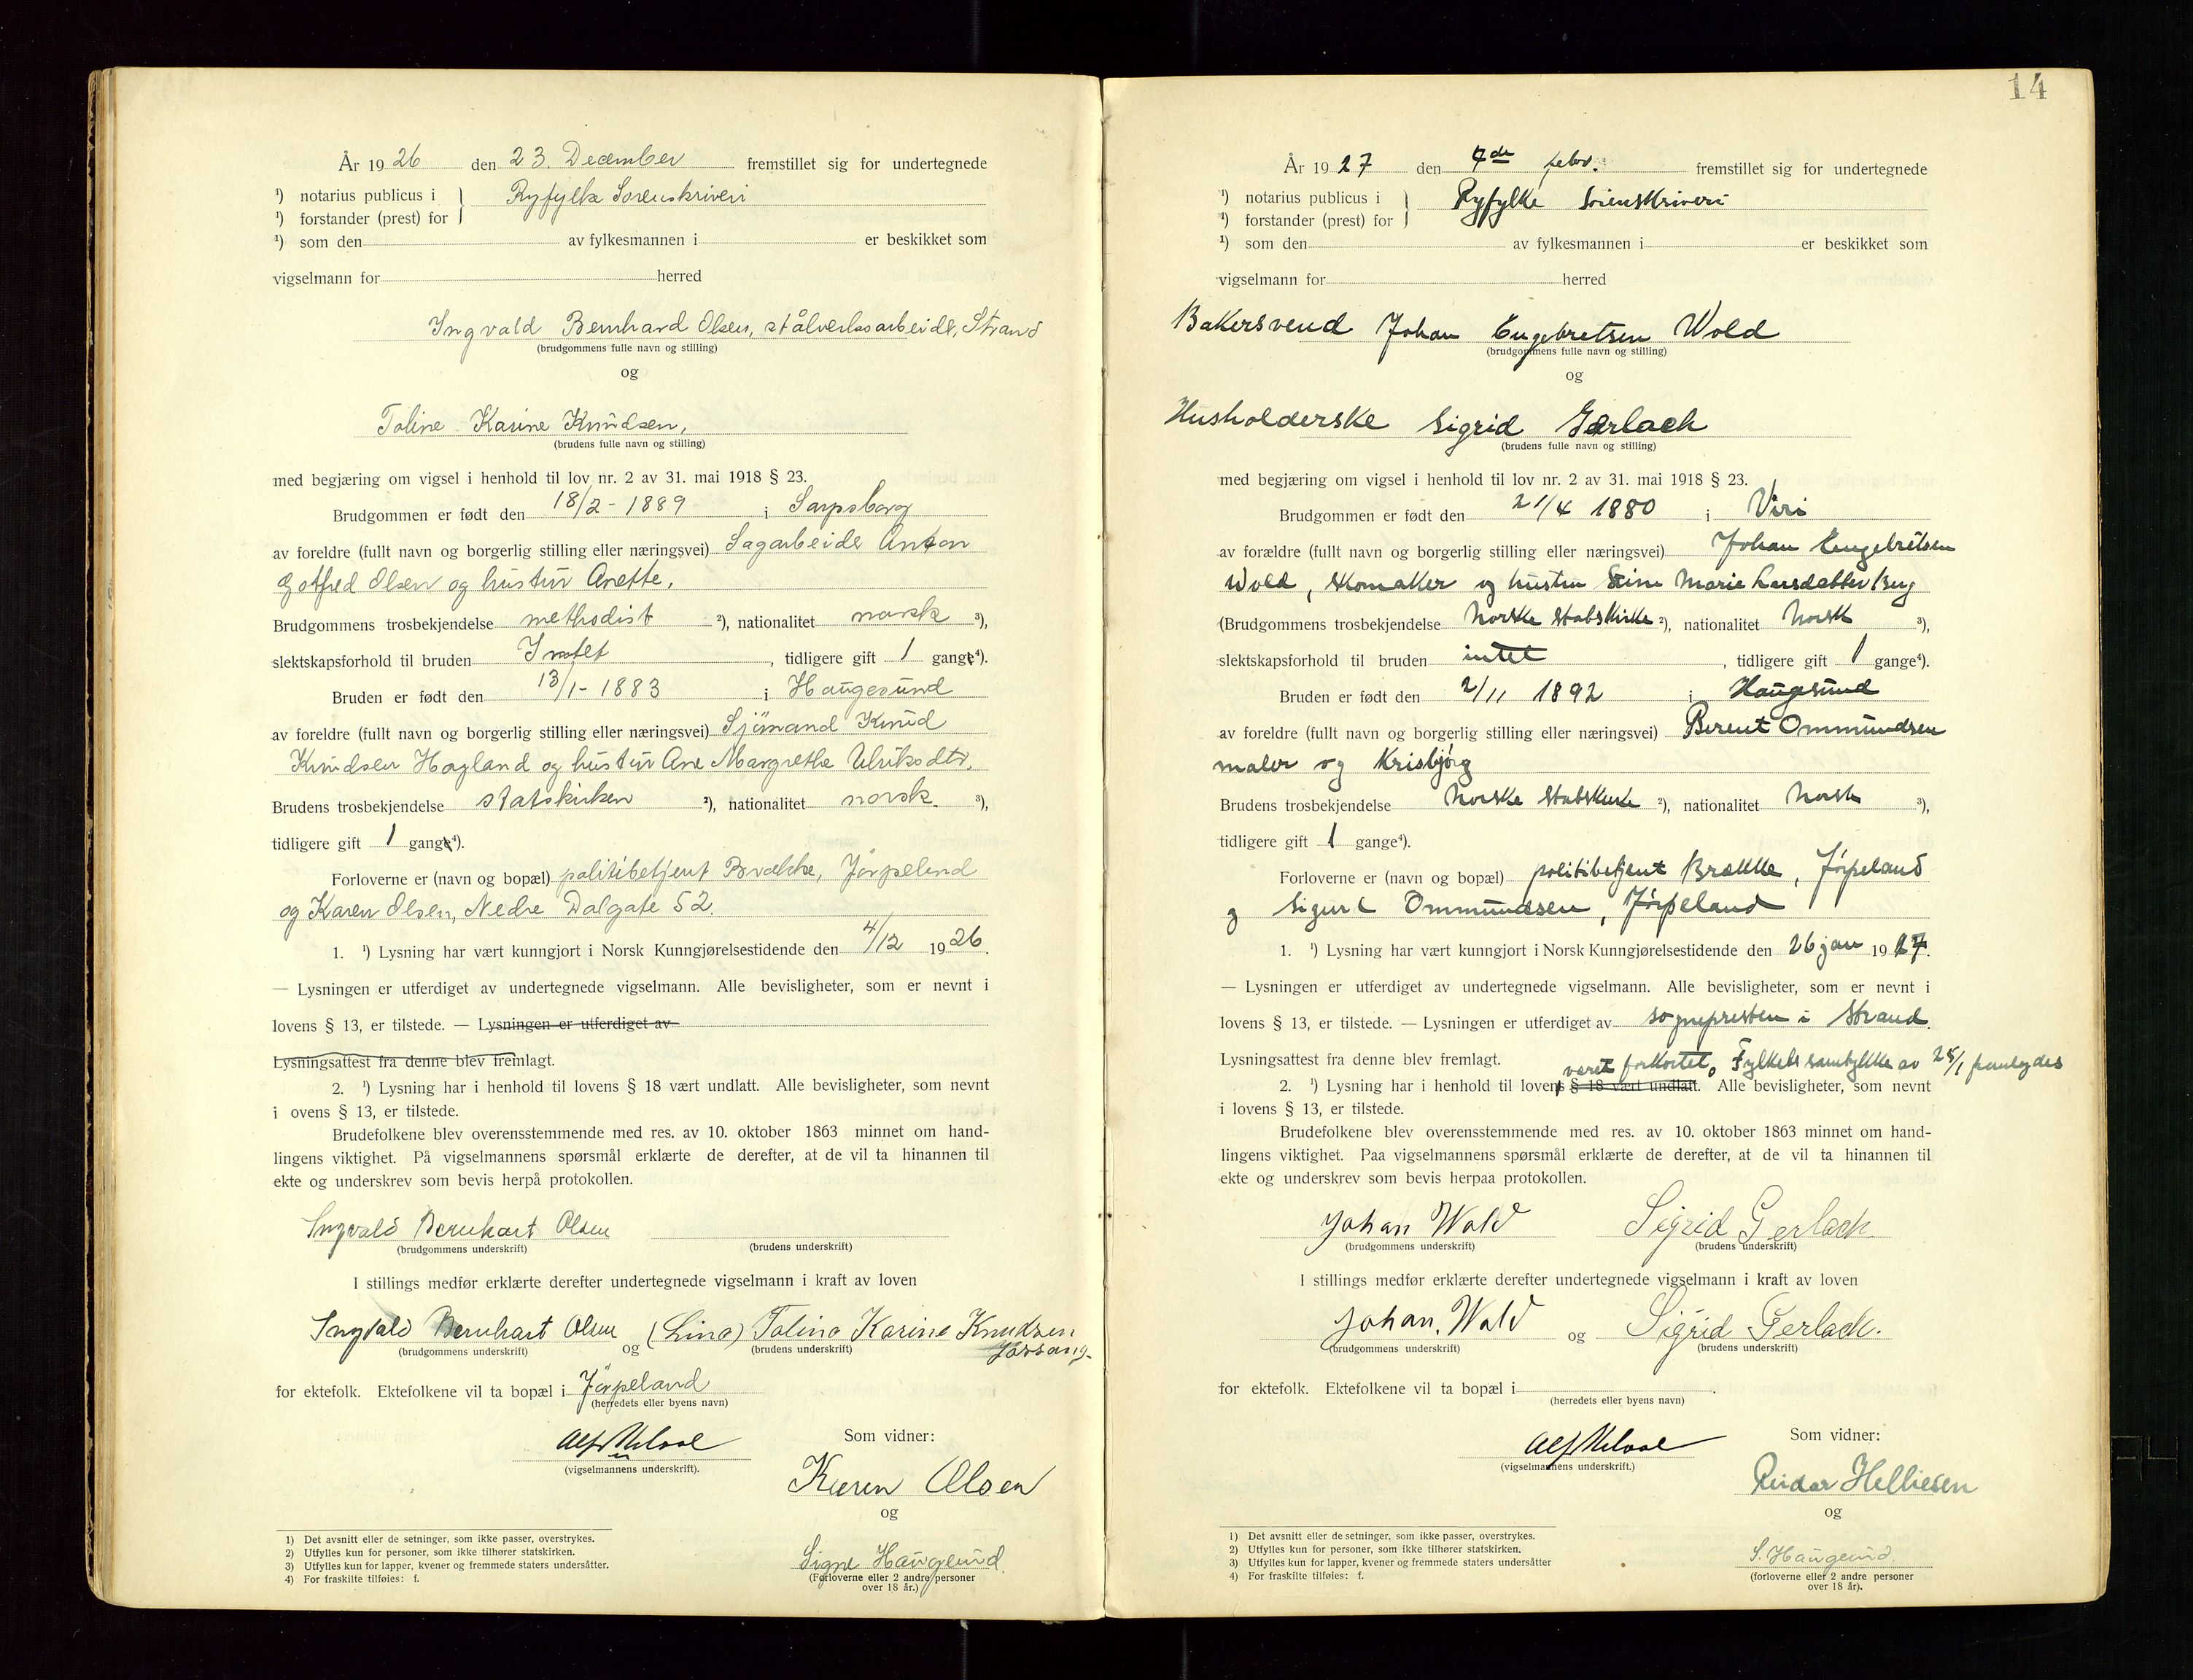 År 1926 den 23. December fremstillet sig for undertegnede
¹) notarius publicus i } Ryfylke Sorenskriveri
¹) forstander (prest) for
¹) som den av fylkesmannen i er beskikket som
vigselmann for herred
Ingvald Bernhard Olsen, stålverksarbeider, Strand
(brudgommens fulle navn og stilling)
og
Toline Karine Knudsen,
(brudens fulle navn og stilling)
med begjæring om vigsel i henhold til lov nr. 2 av 31. mai 1918 § 23.
Brudgommen er født den 18/2 - 1889 i Sarpsborg
av foreldre (fullt navn og borgerlig stilling eller næringsvei) Sagarbeider Anton
Gotfred Olsen og hustru Anette,
Brudgommens trosbekjendelse methodist ²), nationalitet norsk ³),
slektskapsforhold til bruden Intet, tidligere gift 1 gange⁴).
Bruden er født den 13/1 - 1883 i Haugesund
av foreldre (fullt navn og borgerlig stilling eller næringsvei) Sjömand Knud
Knudsen Hagland og hustru Ane Margrethe Ulriksdtr.
Brudens trosbekjendelse statskirken ²), nationalitet norsk. ³),
tidligere gift 1 gange⁴).
Forloverne er (navn og bopæl) politibetjent Brække, Jörpeland
og Karen Olsen, Nedre Dalgate 52.
1. ¹) Lysning har vært kunngjort i Norsk Kunngjørelsestidende den 4/12 1926.
— Lysningen er utferdiget av undertegnede vigselmann. Alle bevisligheter, som er nevnt i
lovens § 13, er tilstede. — Lysningen er utferdiget av
Lysningsattest fra denne blev fremlagt.
2. ¹) Lysning har i henhold til lovens § 18 vært undlatt. Alle bevisligheter, som nevnt
i ovens § 13, er tilstede.
Brudefolkene blev overensstemmende med res. av 10. oktober 1863 minnet om hand-
lingens viktighet. På vigselmannens spørsmål erklærte de derefter, at de vil ta hinannen til
ekte og underskrev som bevis herpå protokollen.
Ingvald Bernhart Olsen
(brudgommens underskrift) (brudens underskrift)
I stillings medfør erklærte derefter undertegnede vigselmann i kraft av loven
Ingvald Bernhart Olsen og (Lina) Tolina Karine Knudsen
Jørsang-
(brudgommens underskrift) (brudens underskrift)
for ektefolk. Ektefolkene vil ta bopæl i Jörpeland
(herredets eller byens navn)
Som vidner:
(vigselmannens underskrift).
Karen Olsen
og
Signe Haugeund
(Forloverne eller 2 andre personer
over 18 år.)
1) Det avsnitt eller de setninger, som ikke passer, overstrykes.
2) Utfylles kun for personer, som ikke tilhører statskirken.
3) Utfylles kun for lapper, kvener og fremmede staters undersåtter.
4) For fraskilte tilføies: f.
14
År 1927 den 7de febr. fremstillet sig for undertegnede
¹) notarius publicus i } Ryfylke Sorenskriveri
¹) forstander (prest) for
¹) som den av fylkesmannen i er beskikket som
vigselmann for herred
Bakersvend Johan Engebretsen Wold
(brudgommens fulle navn og stilling)
og
Husholderske Sigrid Gerlach
(brudens fulle navn og stilling)
med begjæring om vigsel i henhold til lov nr. 2 av 31. mai 1918 § 23.
Brudgommen er født den 21/4 1880 i Viri
av forældre (fullt navn og borgerlig stilling eller næringsvei) Johan Engebretsen
Wold, skomaker og hustru Marie Larsdatter Berg
(Brudgommens trosbekjendelse Norske statskirke ²), nationalitet Norsk ³),
slektskapsforhold til bruden intet, tidligere gift 1 gange⁴).
Bruden er født den 2/11 1892 i Haugesund
av foreldre (fullt navn og borgerlig stilling eller næringsvei) Berent Ommundsen
maler og Krisbjørg
Brudens trosbekjendelse Norske statskirke ²), nationalitet Norsk ³),
tidligere gift 1 gange⁴).
Forloverne er (navn og bopæl) politibetjent Brække, Jörpeland
og Sigurd Ommundsen, Jörpeland
1. ¹) Lysning har vært kunngjort i Norsk Kunngjørelsestidende den 26 jan 1927.
— Lysningen er utferdiget av undertegnede vigselmann. Alle bevisligheter, som er nevnt i
lovens § 13, er tilstede. — Lysningen er utferdiget av sognepresten i Strand
Lysningsattest fra denne blev fremlagt.
været forkortet. Fylkets samtykke av 25/1 fremlagdes
2. ¹) Lysning har i henhold til lovens § 18 vært undlatt. Alle bevisligheter, som nevnt
i lovens § 13, er tilstede.
Brudefolkene blev overensstemmende med res. av 10. oktober 1863 minnet om hand-
lingens viktighet. Paa vigselmannens spørsmål erklærte de derefter, at de vil ta hinannen til
ekte og underskrev som bevis herpaa protokollen.
Johan Wold Sigrid Gerlach
(brudgommens underskrift) (brudens underskrift)
I stillings medfør erklærte derefter undertegnede vigselmann i kraft av loven
Johan Wold og Sigrid Gerlach.
(brudgommens underskrift) (brudens underskrift)
for ektefolk. Ektefolkene vil ta bopæl i .
(herredets eller byens navn)
Som vidner:
(vigselmannens underskrift.)
Reidar Helliesen
og
S. Haugeund
(forloverne eller 2 andre personer
over 18 år).
1) Det avsnitt eller de setninger, som ikke passer, overstrykes.
2) Utfylles kun for personer, som ikke tilhører statskirken.
3) Utfylles kun for lapper, kvener og fremmede staters undersåtter
4) For fraskilte tilføies: f.